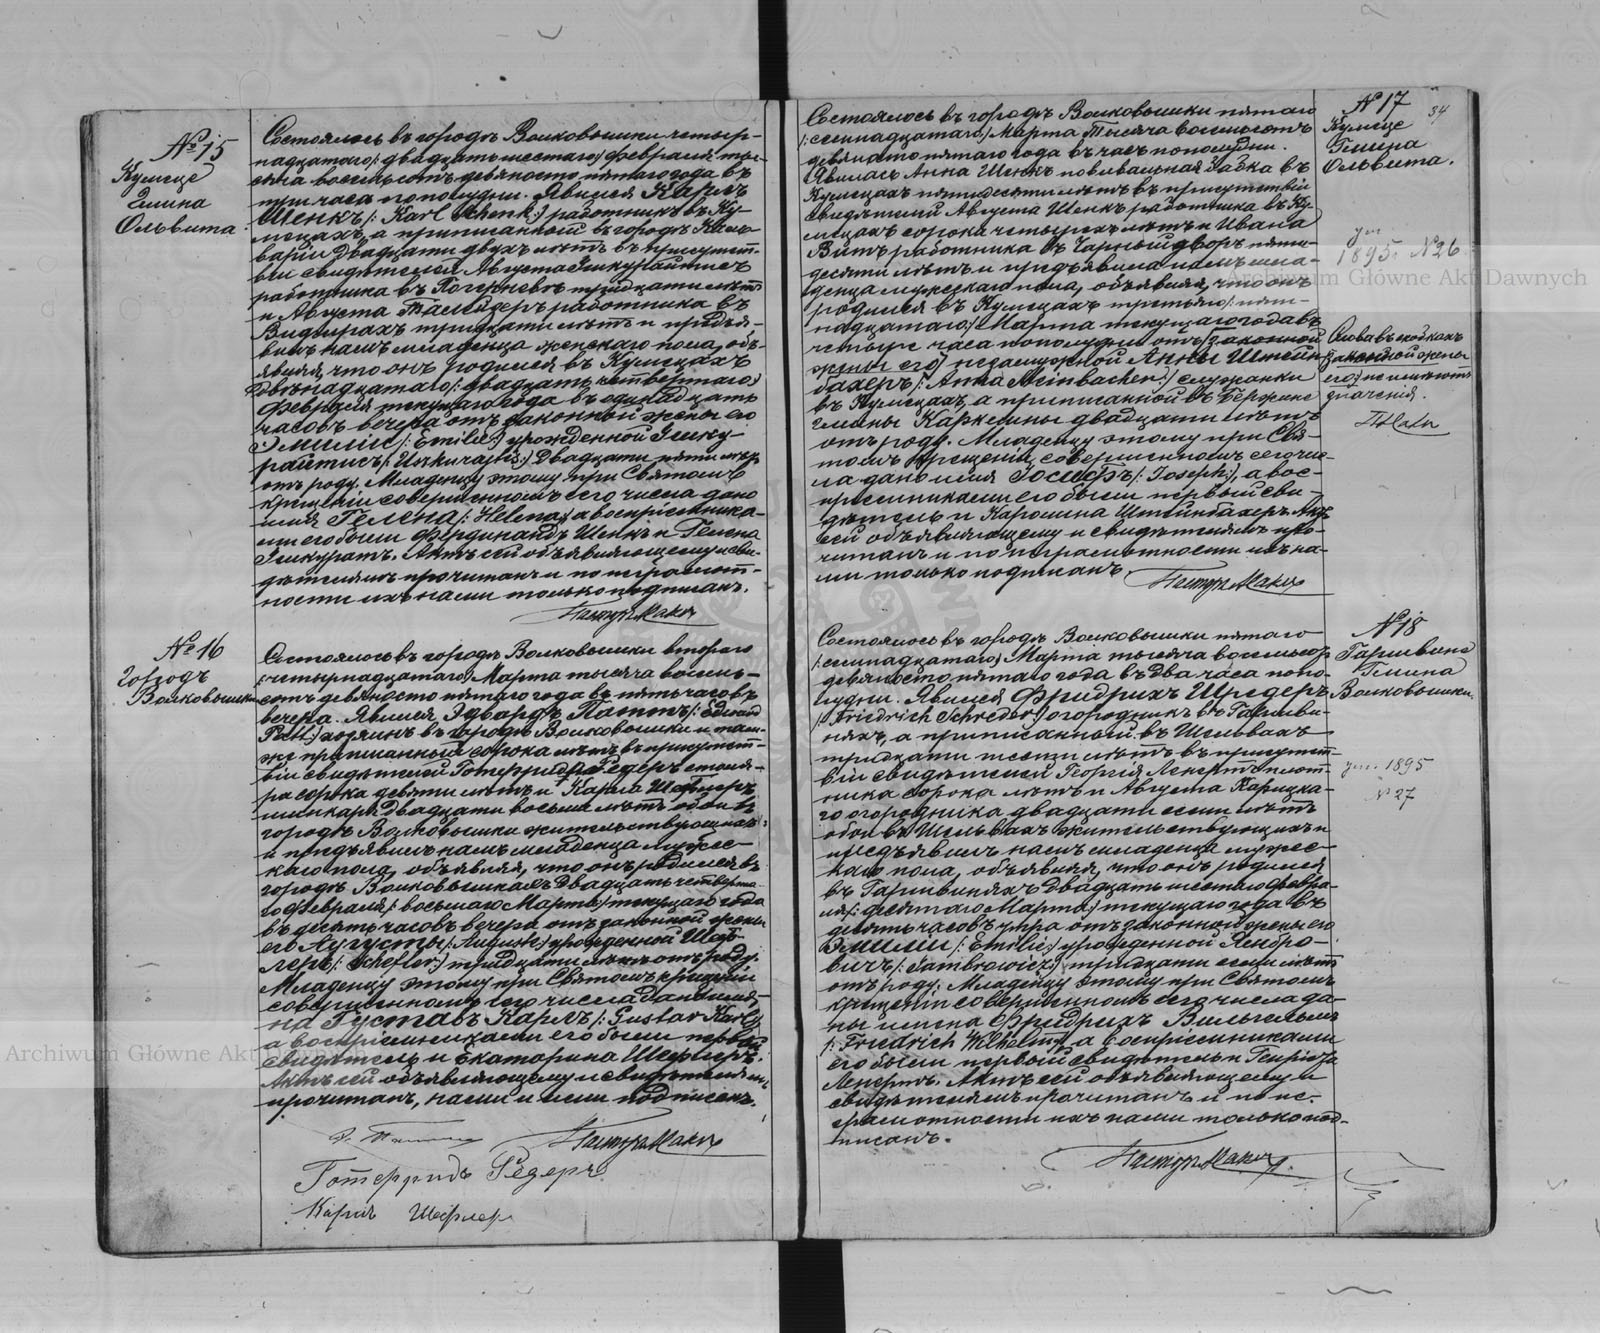 № 15
Кумеце
Гмина
Ольвита.
Состоялось въ городѣ Волковышки четыр-
надцатаго /: двадцать шестаго :/ февраля ты-
сяча восемьсотъ девяносто пятаго года въ
три часа пополудни. Явился Карлъ
Шенкъ /: Karl Schenk :/ работникъ въ Ку-
мецахъ, а приписанный въ городѣ Каль-
варіи двадцати двухъ лѣтъ въ присутст-
віи свидѣтелей Августа
работника въ тридцати лѣтъ
и Августа работника въ
тридцати лѣтъ и предъя-
вилъ намъ младенца женскаго пола, объ-
являя, что онъ родился въ Кумецахъ
двѣнадцатаго /: двадцать четвертаго :/
февраля текущаго года въ одинадцать
часовъ вечера отъ законной жены его
Эмиліи /: Emilie :/ урожденной
двадцати пяти лѣтъ
отъ роду. Младенцу этому при Святомъ
крещеніи совершенномъ сего числа дано
имя Гелена /: Helena :/, а воспріемника-
ми его были Фердинандъ Шенкъ и Гелена
Актъ сей объявляющему и сви-
дѣтелямъ прочитанъ и по неграмот-
ности ихъ нами только подписанъ.
Пасторъ
№ 16
Городъ
Волковышки
Состоялось въ городѣ Волковышки втораго
/: четырнадцатаго :/ Марта тысяча восемь-
сотъ девяносто пятаго года въ пять часовъ
вечера. Явился Эдвардъ /: Edward
хозяинъ въ городѣ Волковышки и тамъ-
же приписанный сорока лѣтъ въ присутст-
віи свидѣтелей Готфрида Редеръ столя-
ра сорока девяти лѣтъ и Карла Шефлеръ
шинкаря двадцати восьми лѣтъ обои въ
городѣ Волковышки жительствующихъ
и предъявилъ намъ младенца мужес-
каго пола, объявляя, что онъ родился въ
городѣ Волковышкахъ двадцать четверта-
го февраля /: восьмаго Марта :/ текущаго года
въ десять часовъ вечера отъ законной жены
его Аугусты /: Auguste :/ урожденной Шеф-
леръ /: Schefler :/ тридцати лѣтъ отъ роду.
Младенцу этому при Святомъ крещеніи
совершенномъ сего числа даны имя-
на Густавъ Карлъ /: Gustav Karl :/
а воспріемниками его были первый
свидѣтель и Екатарина Шефлеръ.
Актъ сей объявляющему и свидѣтелямъ
прочитанъ, нами и ими подписанъ.
Пасторъ
Готфридъ Редеръ
Карлъ Шефлер
34
№ 17
Кумеце
Гмина
Ольвита.
Состоялось въ городѣ Волковышки пятаго
/: семнадцатаго :/ Марта тысяча восемьсотъ
девяносто пятаго года въ часъ пополудни.
Явилась Анна Шенкъ повивальная бабка въ
Кумецахъ пятидесяти лѣтъ въ присутствіи
свидѣтелей Августа Шенкъ работника въ Ку-
мецахъ сорока четырехъ лѣтъ и Ивана
Витъ работника въ Чарный дворъ пяти-
десяти лѣтъ и предъявила намъ мла-
денца мужескаго пола, объявляя, что онъ
родился въ Кумецахъ третьяго /: пят-
надцатаго :/ Марта текущаго года въ
четыре часа пополудни отъ /законной
жены его/ незамужной Анны Штейн-
бахеръ /: Anna Steinbacher :/ служанки
въ Кумецахъ, а приписанной въ
гмины двадцати лѣтъ
отъ роду. Младенцу этому при Свя-
томъ крещеніи, совершенномъ сего чис-
ла дано имя Іосифъ /: Joseph :/, а вос-
пріемниками его были первый сви-
дѣтель и Каролина Штейнбахеръ. Актъ
сей объявляющему и свидѣтелямъ про-
читанъ и по неграмотности ихъ на-
ми только подписанъ.
Пасторъ
ум
1895 № 26
Слова въ скобкахъ
законной жены
его не имѣютъ
значенія.
№ 18
Гмина
Волковышки
Состоялось въ городѣ Волковышки пятаго
/: семнадцатаго :/ Марта тысяча восемьсотъ
девяносто пятаго года въ два часа попо-
лудни. Явился Фридрихъ Шредеръ
/: Friedrich Schreder :/ огородникъ въ
а приписанный въ
тридцати шести лѣтъ въ присутст-
віи свидѣтелей Георгія Ленертъ плот-
ника сорока лѣтъ и Августа
го огородника двадцати семи лѣтъ
обои въ жительствующихъ и
предъявилъ намъ младенца мужес-
каго пола, объявляя, что онъ родился
въ двадцать шестаго Февра-
ля /: десятаго Марта :/ текущаго года въ
девять часовъ утра отъ законной жены его
Эмиліи /: Emilie :/ урожденной Ямбро-
вичъ /: Jambrowicz :/ тридцати семи лѣтъ
отъ роду. Младенцу этому при Святомъ
крещеніи совершенномъ сего числа да-
ны имена Фридрихъ Вильгельмъ
/: Friedrich Wilhelm :/ а воспріемниками
его были первый свидѣтель и
Ленертъ. Актъ сей объявляющему и
свидѣтелямъ прочитанъ и по не-
грамотности ихъ нами только под-
писанъ.
Пасторъ
ум. 1895
№ 27
Archiwum Główne Akt Dawnych
Archiwum Główne Akt